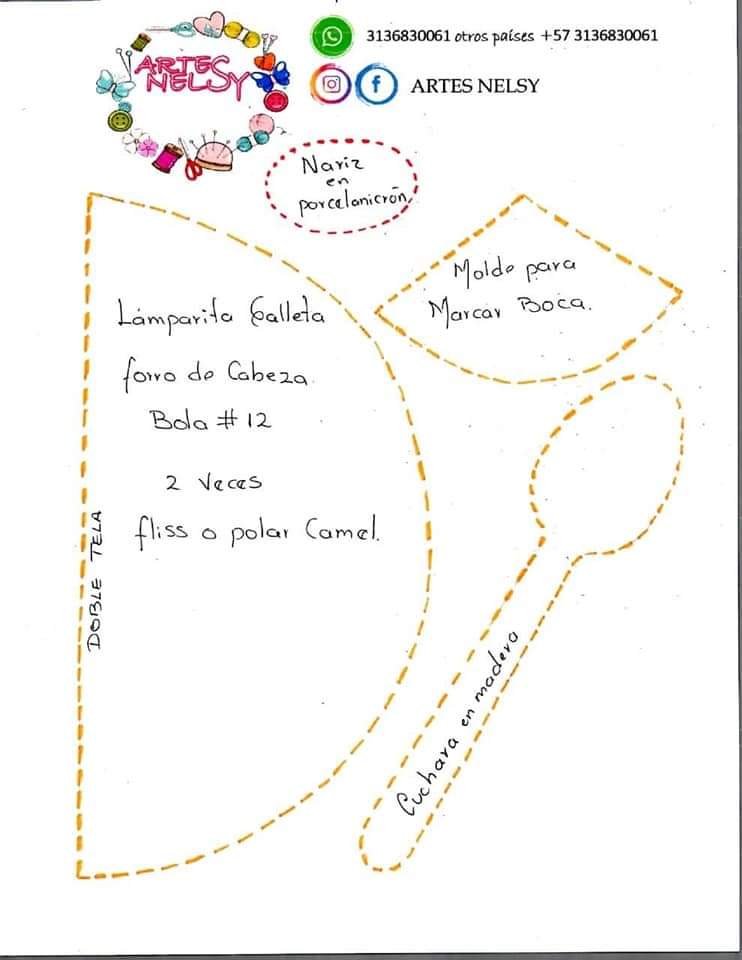 ARTES
NELSY
3136830061 otros países +57 3136830061
ARTES NELSY
Nariz
en
porcelanicrón
Molde para
Marcar Boca.
Lámparita Galleta
forro de Cabeza.
Bola # 12
2 Veces
fliss o polar Camel.
DOBLE TELA
Cuchara en madera